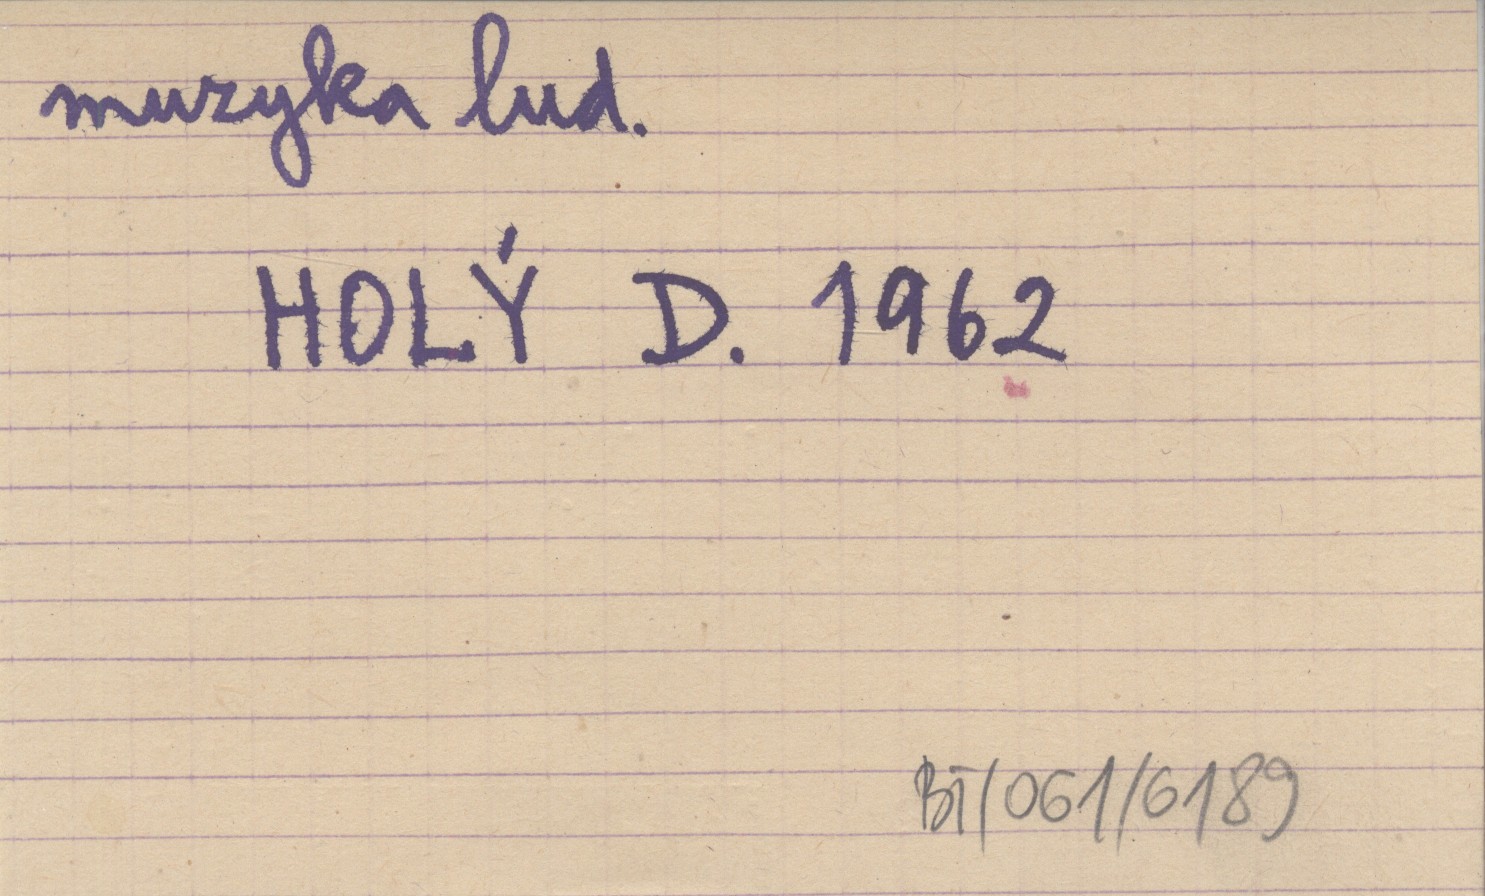 muzyka lud.
HOLÝ D. 1962
BT/061/6189